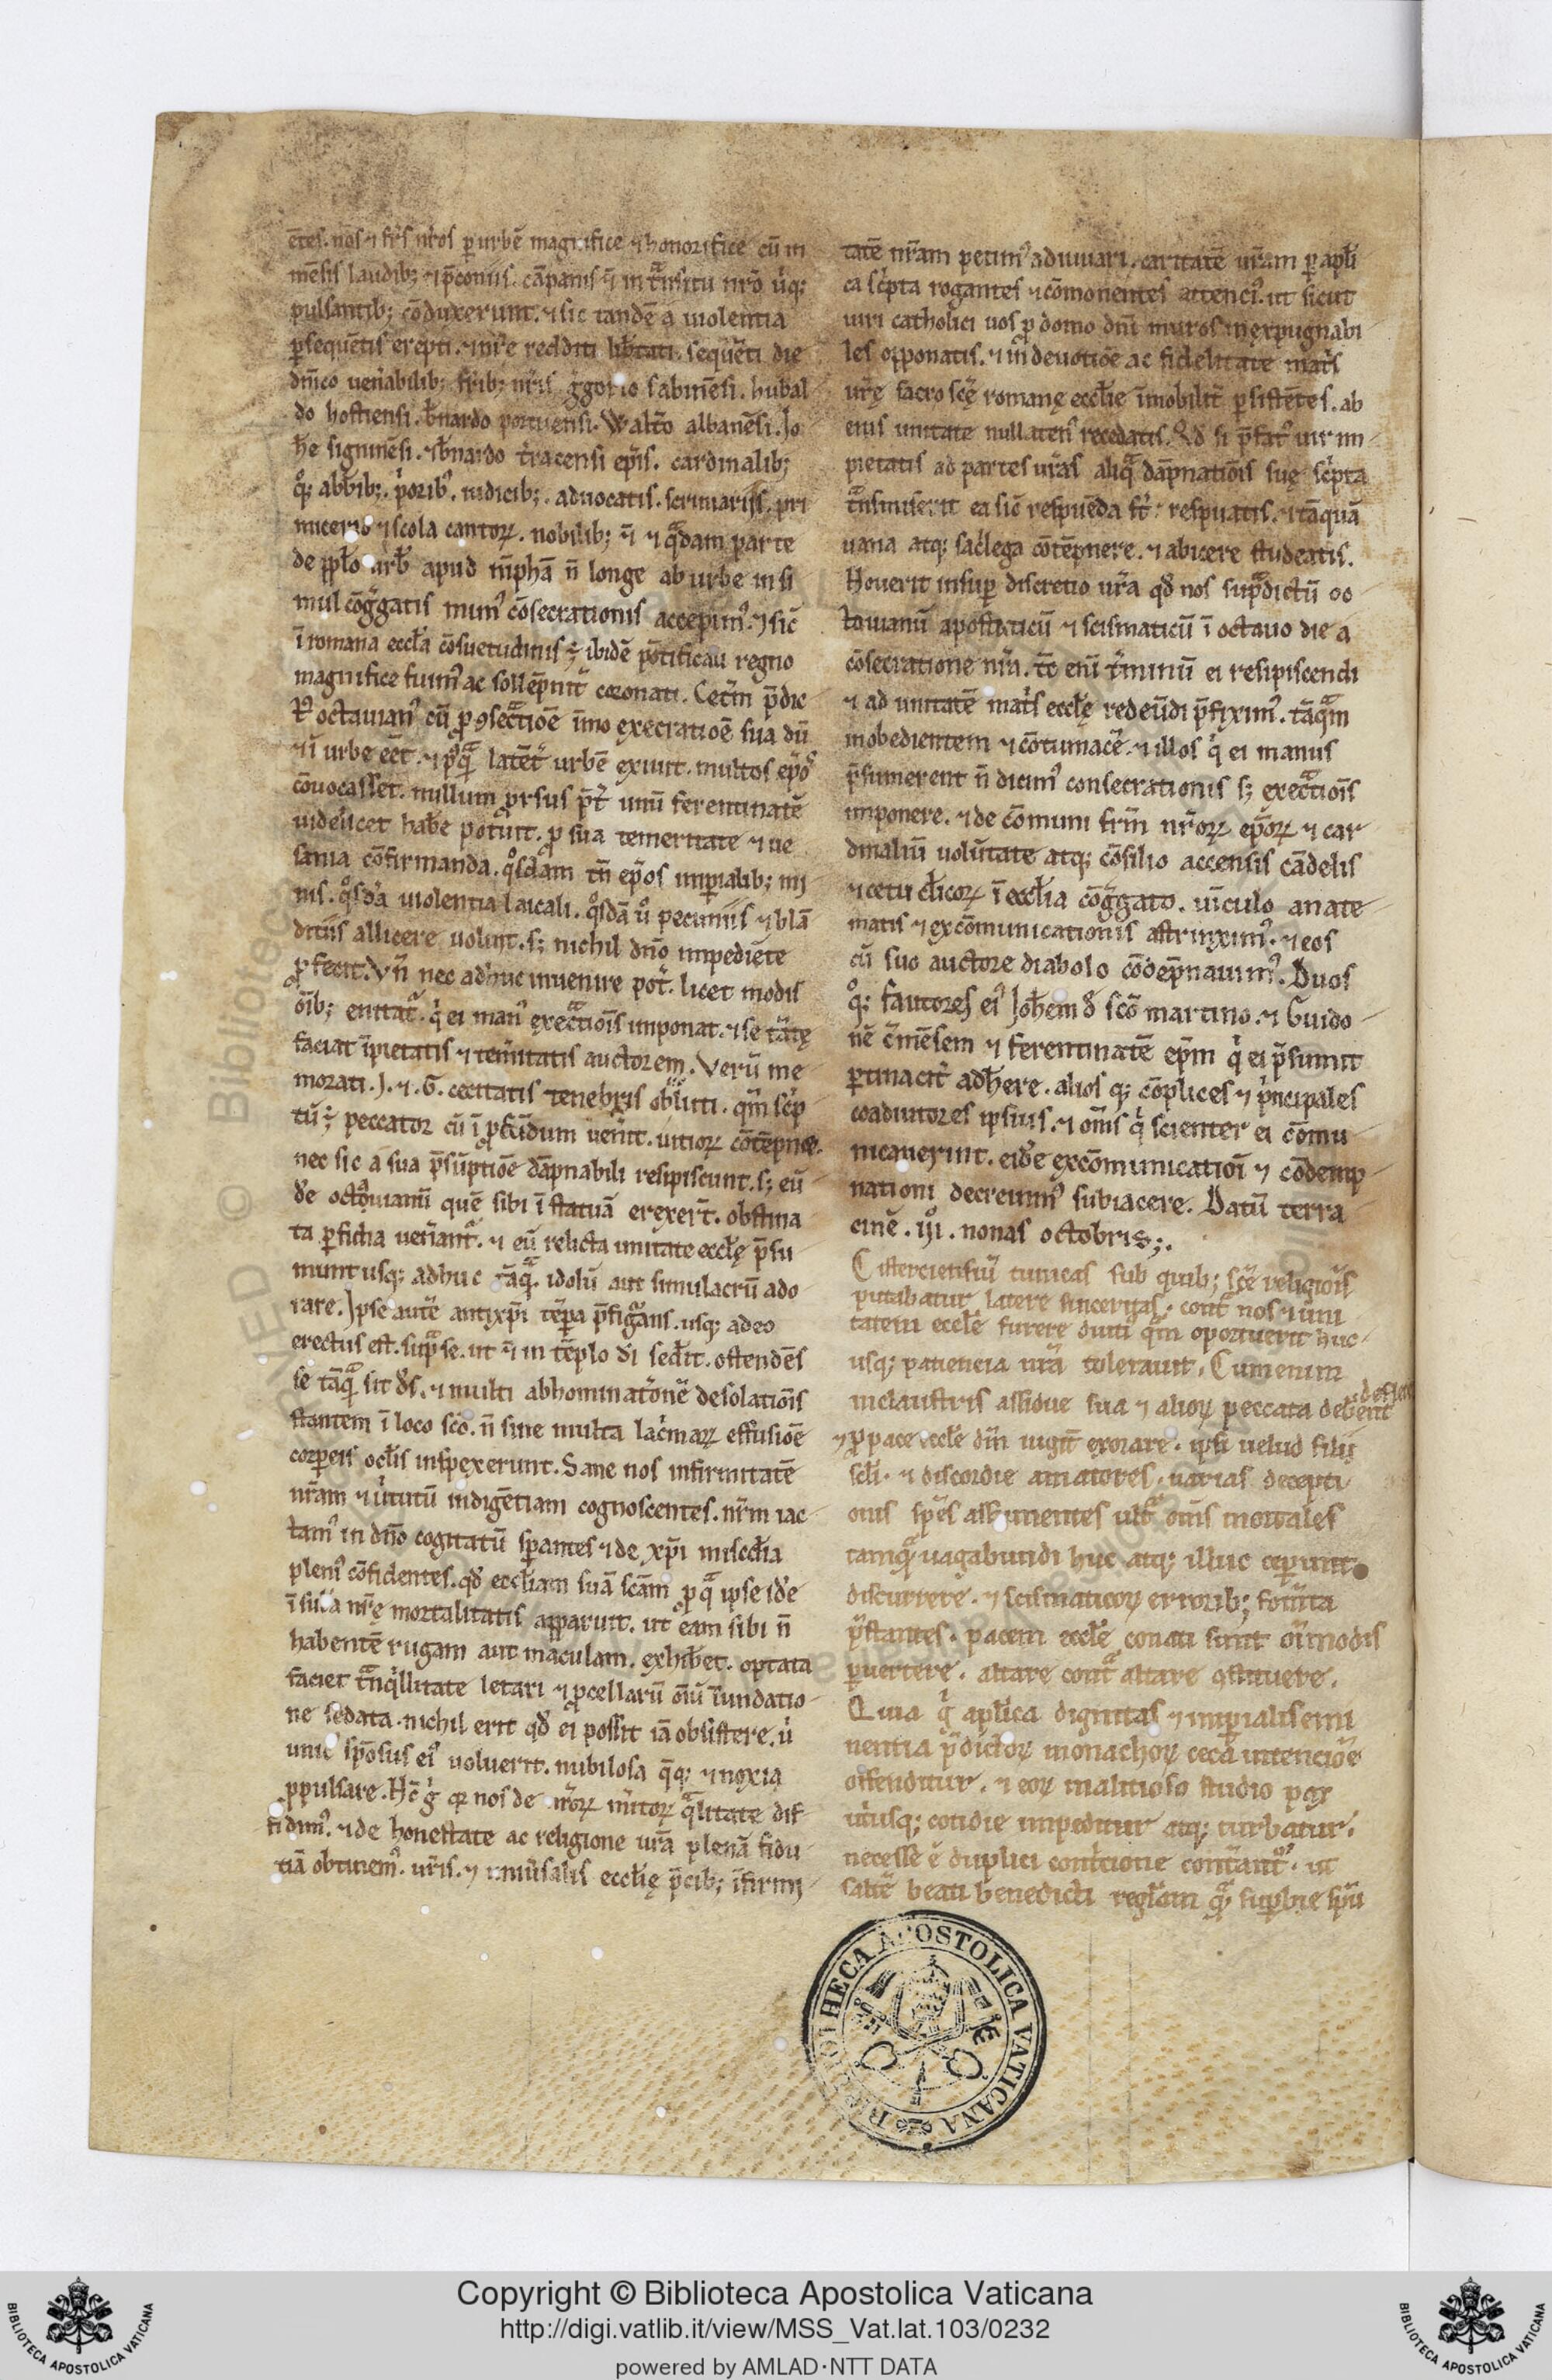 ētes. nos ⁊ fr̄s nr̄os ꝑ urbē magnifice ⁊ honorifice cū in
mēsis laudib; ⁊ p̄coniis. cāpanis ⁊̄ in tͣnsitu nrō úq;
pulsantib; cōduxerunt. ⁊ sic tandē a uiolentia
ꝑsequētis erepti. ⁊ nr̄e redditi lib̄tati. sequēti die
dn̄ico uen̄abilib; fr̄ib; nr̄is g̓gorio sabinēsi. hubal
do hostiensi. b̄nardo portuensi. Walt̄o albanēsi. Jo
h̄e signinēsi. ⁊ b̄nardo t̓racensi ep̄is. cardinalib;
qͦ; abb̄ib;. p̓orib᾽. iudicib;. aduocatis. scriniariis. pri
micerio ⁊ scola cantoꝝ. nobilib; ⁊̄ ⁊ qͣdam parte
de pplo urb̄ apud nīphā n̄ longe ab urbe in si
mul cōg̓gatis mun᾽ cōsecrationis accepim᾽. ⁊ sic̄
ī romana eccl̄a cōsuetudinis ÷ ibidē pōtificali regno
magnifice fuim᾽ ac sollēpnit̄ coronati. Cet̄m p̄dic
t᾽ octauian᾽ cū ꝓ ꝯsecͣtiōe īmo exęcratiōe sua dū
⁊ ī urbe eēt. ⁊ pqͣ latēt̄ urbē exiuit. multos ep̄os
cōuocasset. nullum ꝓrsus p̄t̄ unū ferentinatē
uidelicet hab̄e potuit. ꝓ sua temeritate ⁊ ue
sania cōfirmanda. qͦsdam tn̄ ep̄os imꝑialib; mi
nis. qͦsdā uiolentia laicali. qͦsdā ůo pecuniis ⁊ blā
ditiis allicere uoluit. s; nichil dn̄o impediēte
ꝓfecit. Vn̄ nec adhuc inuenire pot̄. licet modis
ōib; enitat̄. q̓ ei man᾽ exęcͣtiōis imponat. ⁊ se tātę
faciat īpietatis ⁊ tem̄itatis auctorem. Verū me
morati. J. ⁊. G. cecitatis tenebris obliti. qm̄ sc̓p
tū ÷ peccator cū ī ꝓfūdum uen̄it. uitioꝝ cōtēpnē.
nec sic a sua p̄sūptiōe dāpnabili resipiscunt. s; eū
dē octouianū quē sibi ī statuā erexer̄t. obstina
ta ꝑfidia uen̄ant̄. ⁊ eū relicta unitate eccl̄ę p̄su
munt usq; adhuc tāqͣ idolū aut simulacrū ado
rare. Jpse autē antixp̄i tēꝑa p̄figͣans. usq; adeo
erectus est. supͣ se. ut ⁊̄ in tēplo di sed̄it. ostendēs
se tāqͣ sit ds̄. ⁊ multi abhominatōnē desolatiōis
stantem ī loco sc̄o. n̄ sine multa lac̓maꝝ effusiōe
corꝑeis ocl̄is inspexerunt. Sane nos infirmitatē
nr̄am ⁊ u̓tutū indigētiam cognoscentes. nr̄m iac
tam᾽ in dn̄o cogitatū sꝑantes ⁊ de xp̄i misc̄dia
plen᾽ cōfidentes. qd̄ eccl̄iam suā sc̄am ꝓ qͣ ipse id̄e
nr̄ę mortalitatis apparuit. ut eam sibi n̄
habentē rugam aut maculam. exhib̄et. optata
faciet tͣnq̓llitate letari ⁊ ꝓcellarū oīū īundatio
ne sedata. nichil erit qd̄ ei possit iā obsistere. ů
unic᾽ spōsus ei᾽ uoluerit. nubilosa q̄q; ⁊ noxia
ꝓpulsare. Hc̄ g̓ qꝛ nos de nr̄oꝝ m̄itoꝝ qͣlitate dif
fidim᾽. ⁊ de honestate ac religione ur̄a plenā fidu
tiā obtinem᾽. ur̄is. ⁊ uniūsalis eccl̄ię p̄cib; īfirmi
tatē nr̄am petim᾽ adiuuari. caritatē ur̄am ꝑ apl̄i
ca sc̓pta rogantes ⁊ cōmonentes attenci᾽. ut sicut
uiri catholici uos ꝓ domo dn̄i muros inexpugnabi
les opponatis. ⁊ in deuotiōe ac fidelitate mat̓s
ur̄ę sacro sc̄ę romanę eccl̄ie īmobilit̄ ꝑsistētes. ab
eius unitate nullaten᾽ recedatis. Qd̄ si p̄fat᾽ uir im
pietatis ad partes ur̄as aliqͣ dāpnatiōis suę sc̓pta
tͣnsmiserit ea sic̄ respuēda st̄: respuatis. ⁊ tāquā
uana atq; sac̓lega cōtēpnere. ⁊ abicere studeatis.
Houerit insuꝑ discretio ur̄a qd̄ nos supͣdictū oc
tauianū apostaticū ⁊ scismaticū ī octauo die a
cōsecratione nr̄a. tc̄ enī t̄minū ei resipiscendi
⁊ ad unitatē mat̓s eccl̄ę redeūdi p̄fixim᾽. tāqͣm
inobedientem ⁊ cōtumacē. ⁊ illos q̓ ei manus
p̄sumerent n̄ dicim᾽ consecrationis s; execͣtiōis
imponere. ⁊ de cōmuni frm̄ nr̄oꝝ ep̄oꝝ ⁊ car
dinaliū uolūtate atq; cōsilio accensis cādelis
⁊ cetu cl̄icoꝝ ī eccl̄ia cōg̓gato. uīculo anate
matis ⁊ excōmunicationis astrinxim᾽. ⁊ eos
cū suo auctore diabolo cōdēpnauim᾽. Duos
qͦ; fautores ei᾽ Joh̄em d̄ sc̄o martino. ⁊ Guido
nē c̄mēsem ⁊ ferentinatē ep̄m q̓ ei p̄sumit
ꝑtinacit̄ adh̄ere. alios q; cōplices ⁊ p̓ncipales
coadiutores ipsius. ⁊ om̄s q̓ scienter ei cōmu
nicauerint. eid̄e excōmunicatioī ⁊ cōdemp
nationi decreuim᾽ subiacere. Datū terra
cinē. iiͦi. nonas octobris;.
Cistercientiū tunicas sub quib; sc̄e religiōis
putabatur latere sinceritas. contͣ nos ⁊ uni
tatem eccl̄e furere diuti᾽ qͣm oportuerit huc
usq; patiencia nr̄a tolerauit. Cum enim
in claustris assidue sua ⁊ alioꝝ peccata deb̄ent deflere
⁊ ꝓ pace eccl̄e dn̄m iugit̄ exorare. ipsi uelud filii
scl̄i. ⁊ discordie amatores. uarias decepti
onis sp̄es assumentes ultͣ om̄s mortales
tamqͣ uagabundi huc atq; illuc ceꝑunt
discurrere. ⁊ scismaticoꝝ errorib; fomīta
p̄stantes. pacem eccl̄e conati sunt oī̄modis
ꝑuertere. altare contͣ altare ꝯstituere.
Quia g̓ apl̄ica dignitas ⁊ imꝑialis emi
nentia p̄dictoꝝ monachoꝝ ceca intenciōe
offenditur. ⁊ eoꝝ malitioso studio pax
utiusq; cotidie impeditur atq; turbatur.
necesse ē duplici cont̓cione contͣant̄. ut
saltē beati benedicti regl̄am qͣ suꝑbie sp̄u
BIBLIOTHECA APOSTOLICA VATICANA
Copyright © Biblioteca Apostolica Vaticana
http://digi.vatlib.it/view/MSS_Vat.lat.103/0232
powered by AMLAD·NTT DATA
BIBLIOTECA APOSTOLICA VATICANA
BIBLIOTECA APOSTOLICA VATICANA